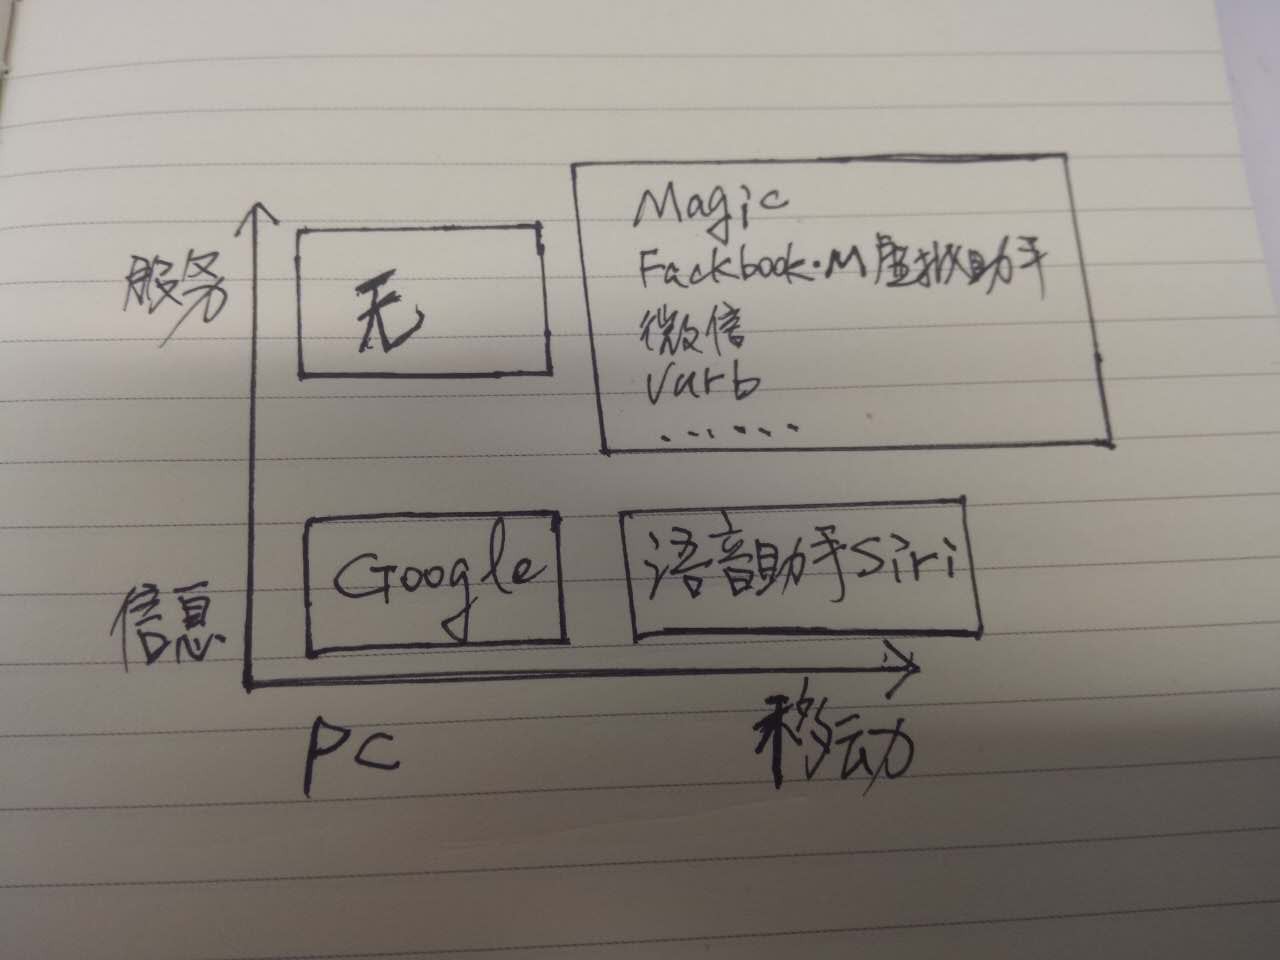 服务
无
Magic
Fackbook·M虚拟助手
微信
Varb
……
信息
Google
语音助手Siri
PC
移动